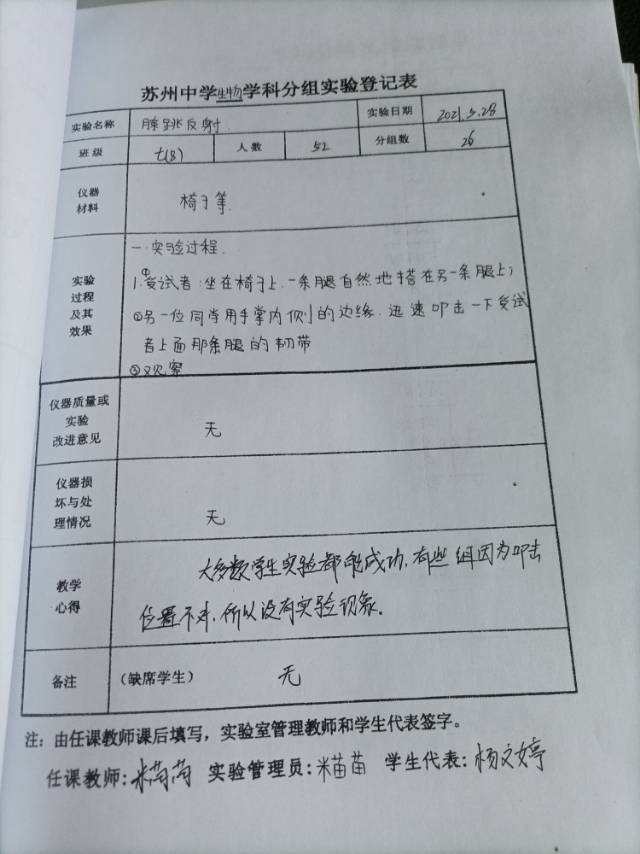 苏州中学生物学科分组实验登记表
实验名称 膝跳反射 实验日期 2021.5.28
班级 七(8) 人数 52 分组数 26
仪器
材料
椅子等
实验
过程
及其
效果
一.实验过程.
1.①受试者:坐在椅子上.一条腿自然地搭在另一条腿上;
②另一位同学用手掌内侧的边缘.迅速叩击一下受试
者上面那条腿的韧带
③观察
仪器质量或
实验
改进意见
无
仪器损
坏与处
理情况
无
教学
心得
大多数学生实验都能成功,有些组因为叩击
位置不对,所以没有实验现象。
备注 (缺席学生) 无
注:由任课教师课后填写,实验室管理教师和学生代表签字。
任课教师:米苗苗 实验管理员:米苗苗 学生代表:杨文婷